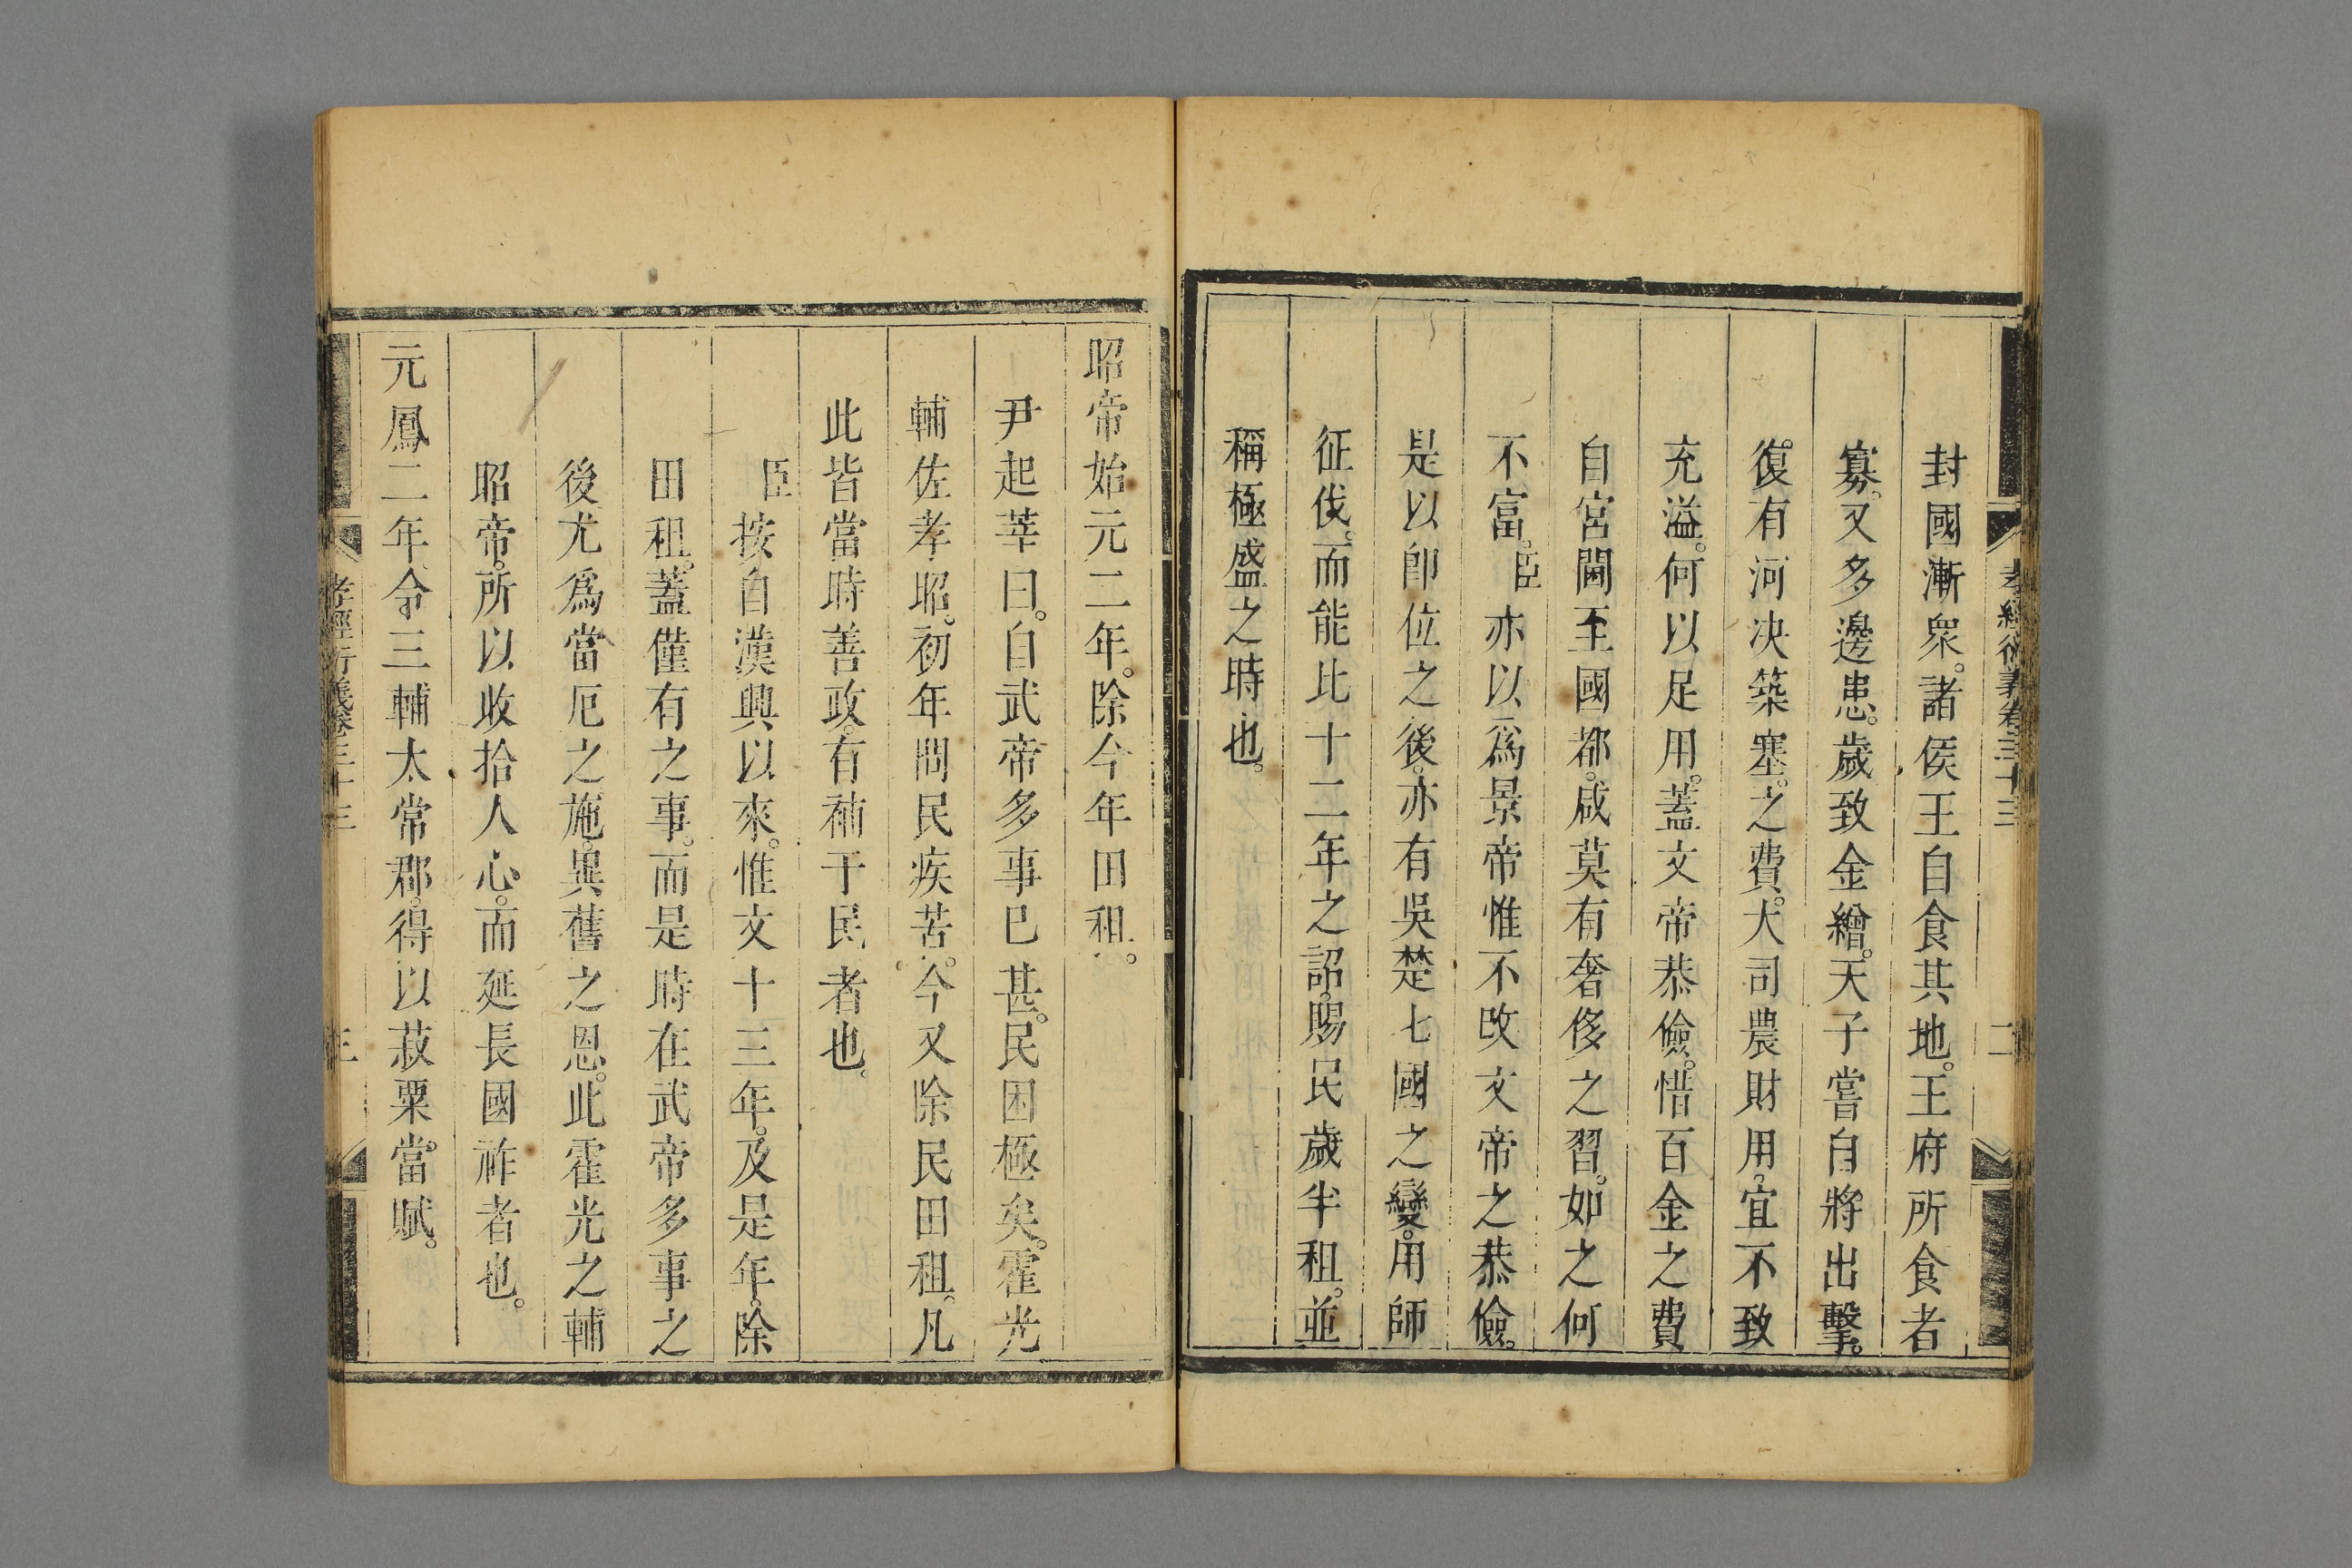 孝經衍義卷三十三 二
封國漸衆。諸侯王自食其地。王府所食者
寡。又多邊患。歲致金繒。天子嘗自將出擊。
復有河决築塞。之費。大司農財用。宜不致
充溢。何以足用。蓋文帝恭儉。惜百金之費
自宮閫至國都。咸莫有奢侈之習。如之何
不富。臣亦以爲景帝惟不改文帝之恭儉。
是以卽位之後。亦有吳楚七國之變。用師
征伐。而能比十二年之詔。賜民歲半租。並
稱極盛之時也。
昭帝始元二年。除今年田租。
尹起莘曰。自武帝多事已甚。民困極矣。霍光
輔佐孝昭。初年問民疾苦。今又除民田租。凡
此皆當時善政。有補于民者也。
臣按自漢興以來。惟文十三年。及是年。除
田租。蓋僅有之事。而是時在武帝多事之
後。尤爲當厄之施。異舊之恩。此霍光之輔
昭帝。所以收拾人心。而延長國祚者也。
元鳳二年。令三輔太常郡。得以菽粟當賦。
孝經衍義卷三十三 三